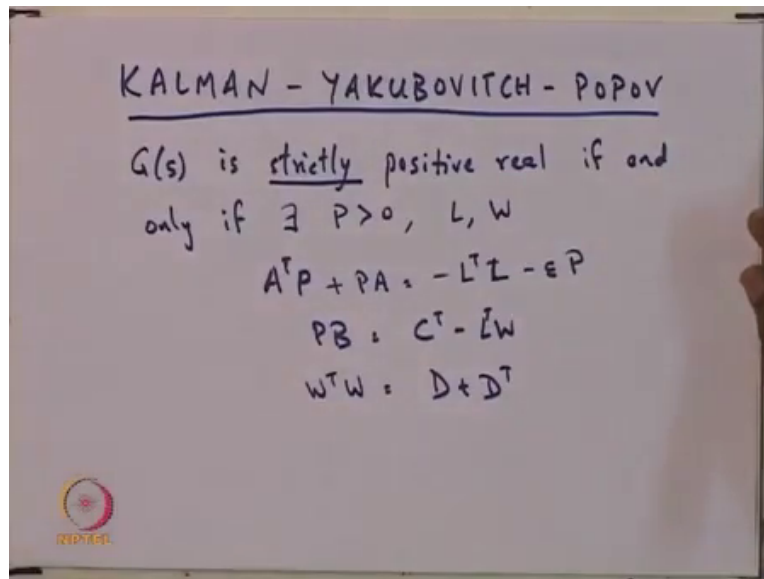 KALMAN - YAKUBOVITCH - POPOV
G(s) is strictly positive real if and
only if ∃ P>0, L, W
AᵀP + PA = -LᵀL - εP
PB = Cᵀ - LᵀW
WᵀW = D + Dᵀ
NPTEL